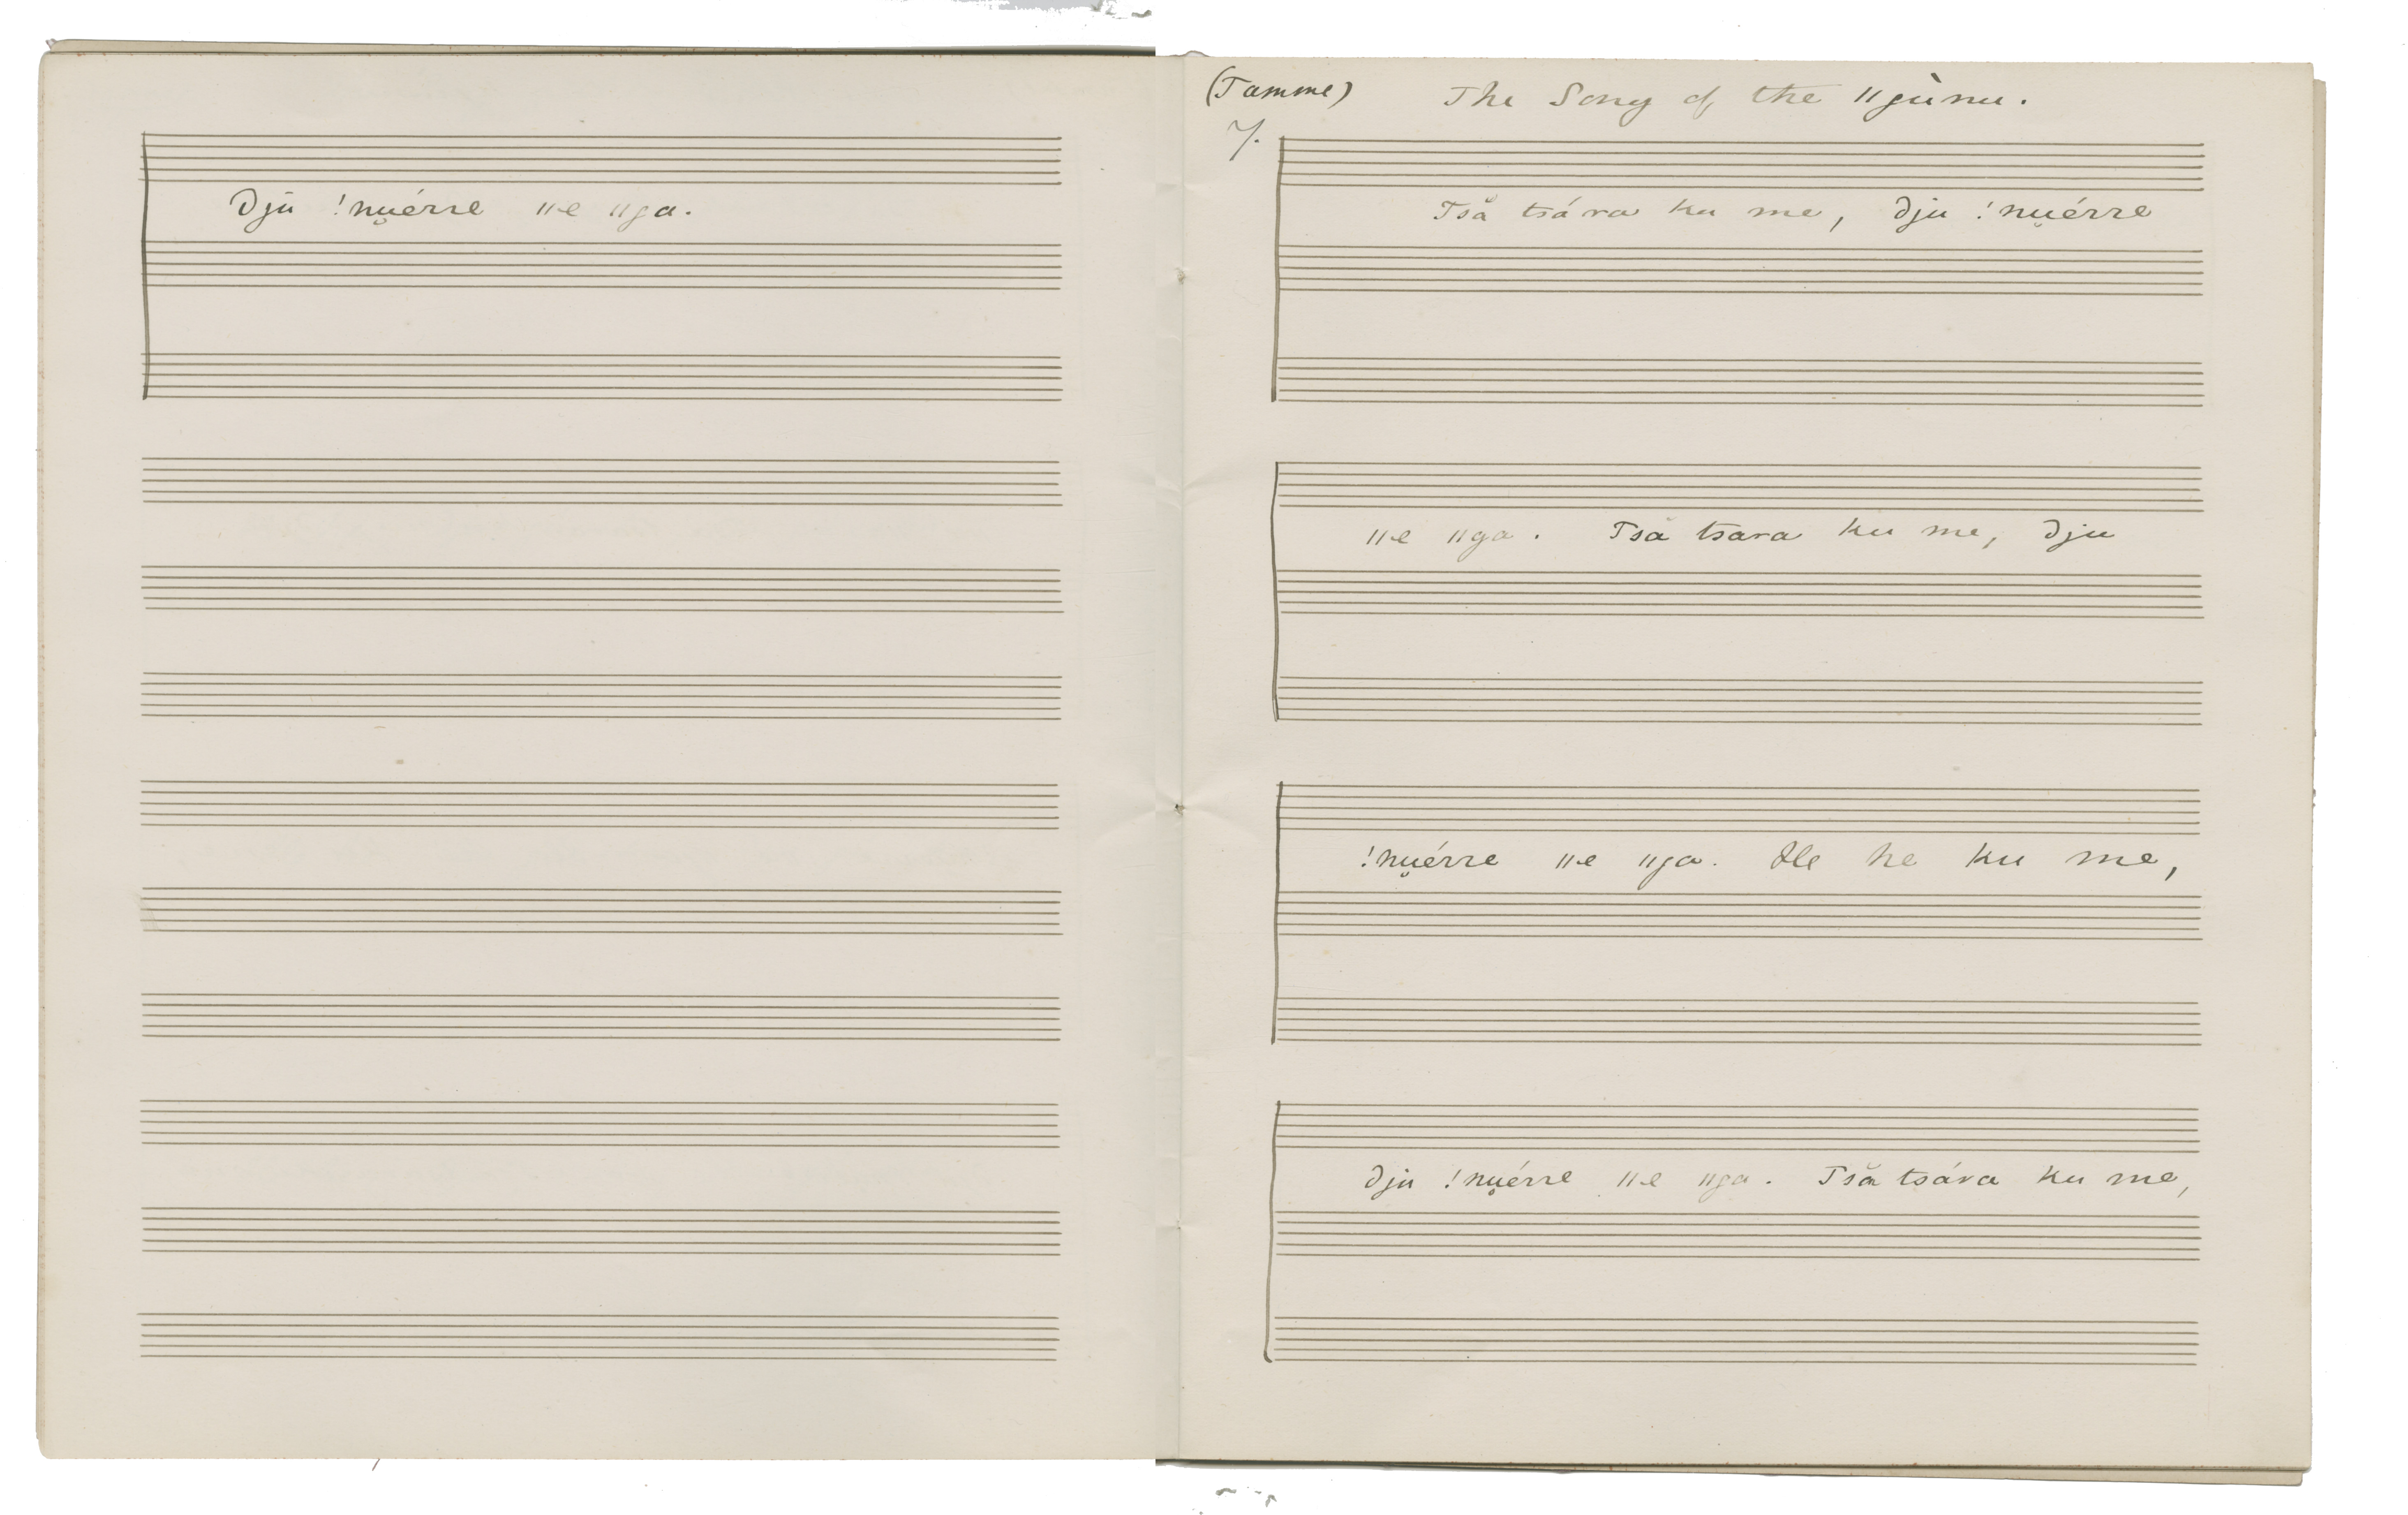 Dju !nu̯érre ||e ||ga.
(Tamme) The Song of the ||gùnu.
7.
Tsă tsára ku me, Dju !nu̯érre
||e ||ga. Tsă tsara ku me, Dju
!nu̯érre ||e ||ga. He he ku me,
Dju !nu̯érre ||e ||ga. Tsă tsára ku me,